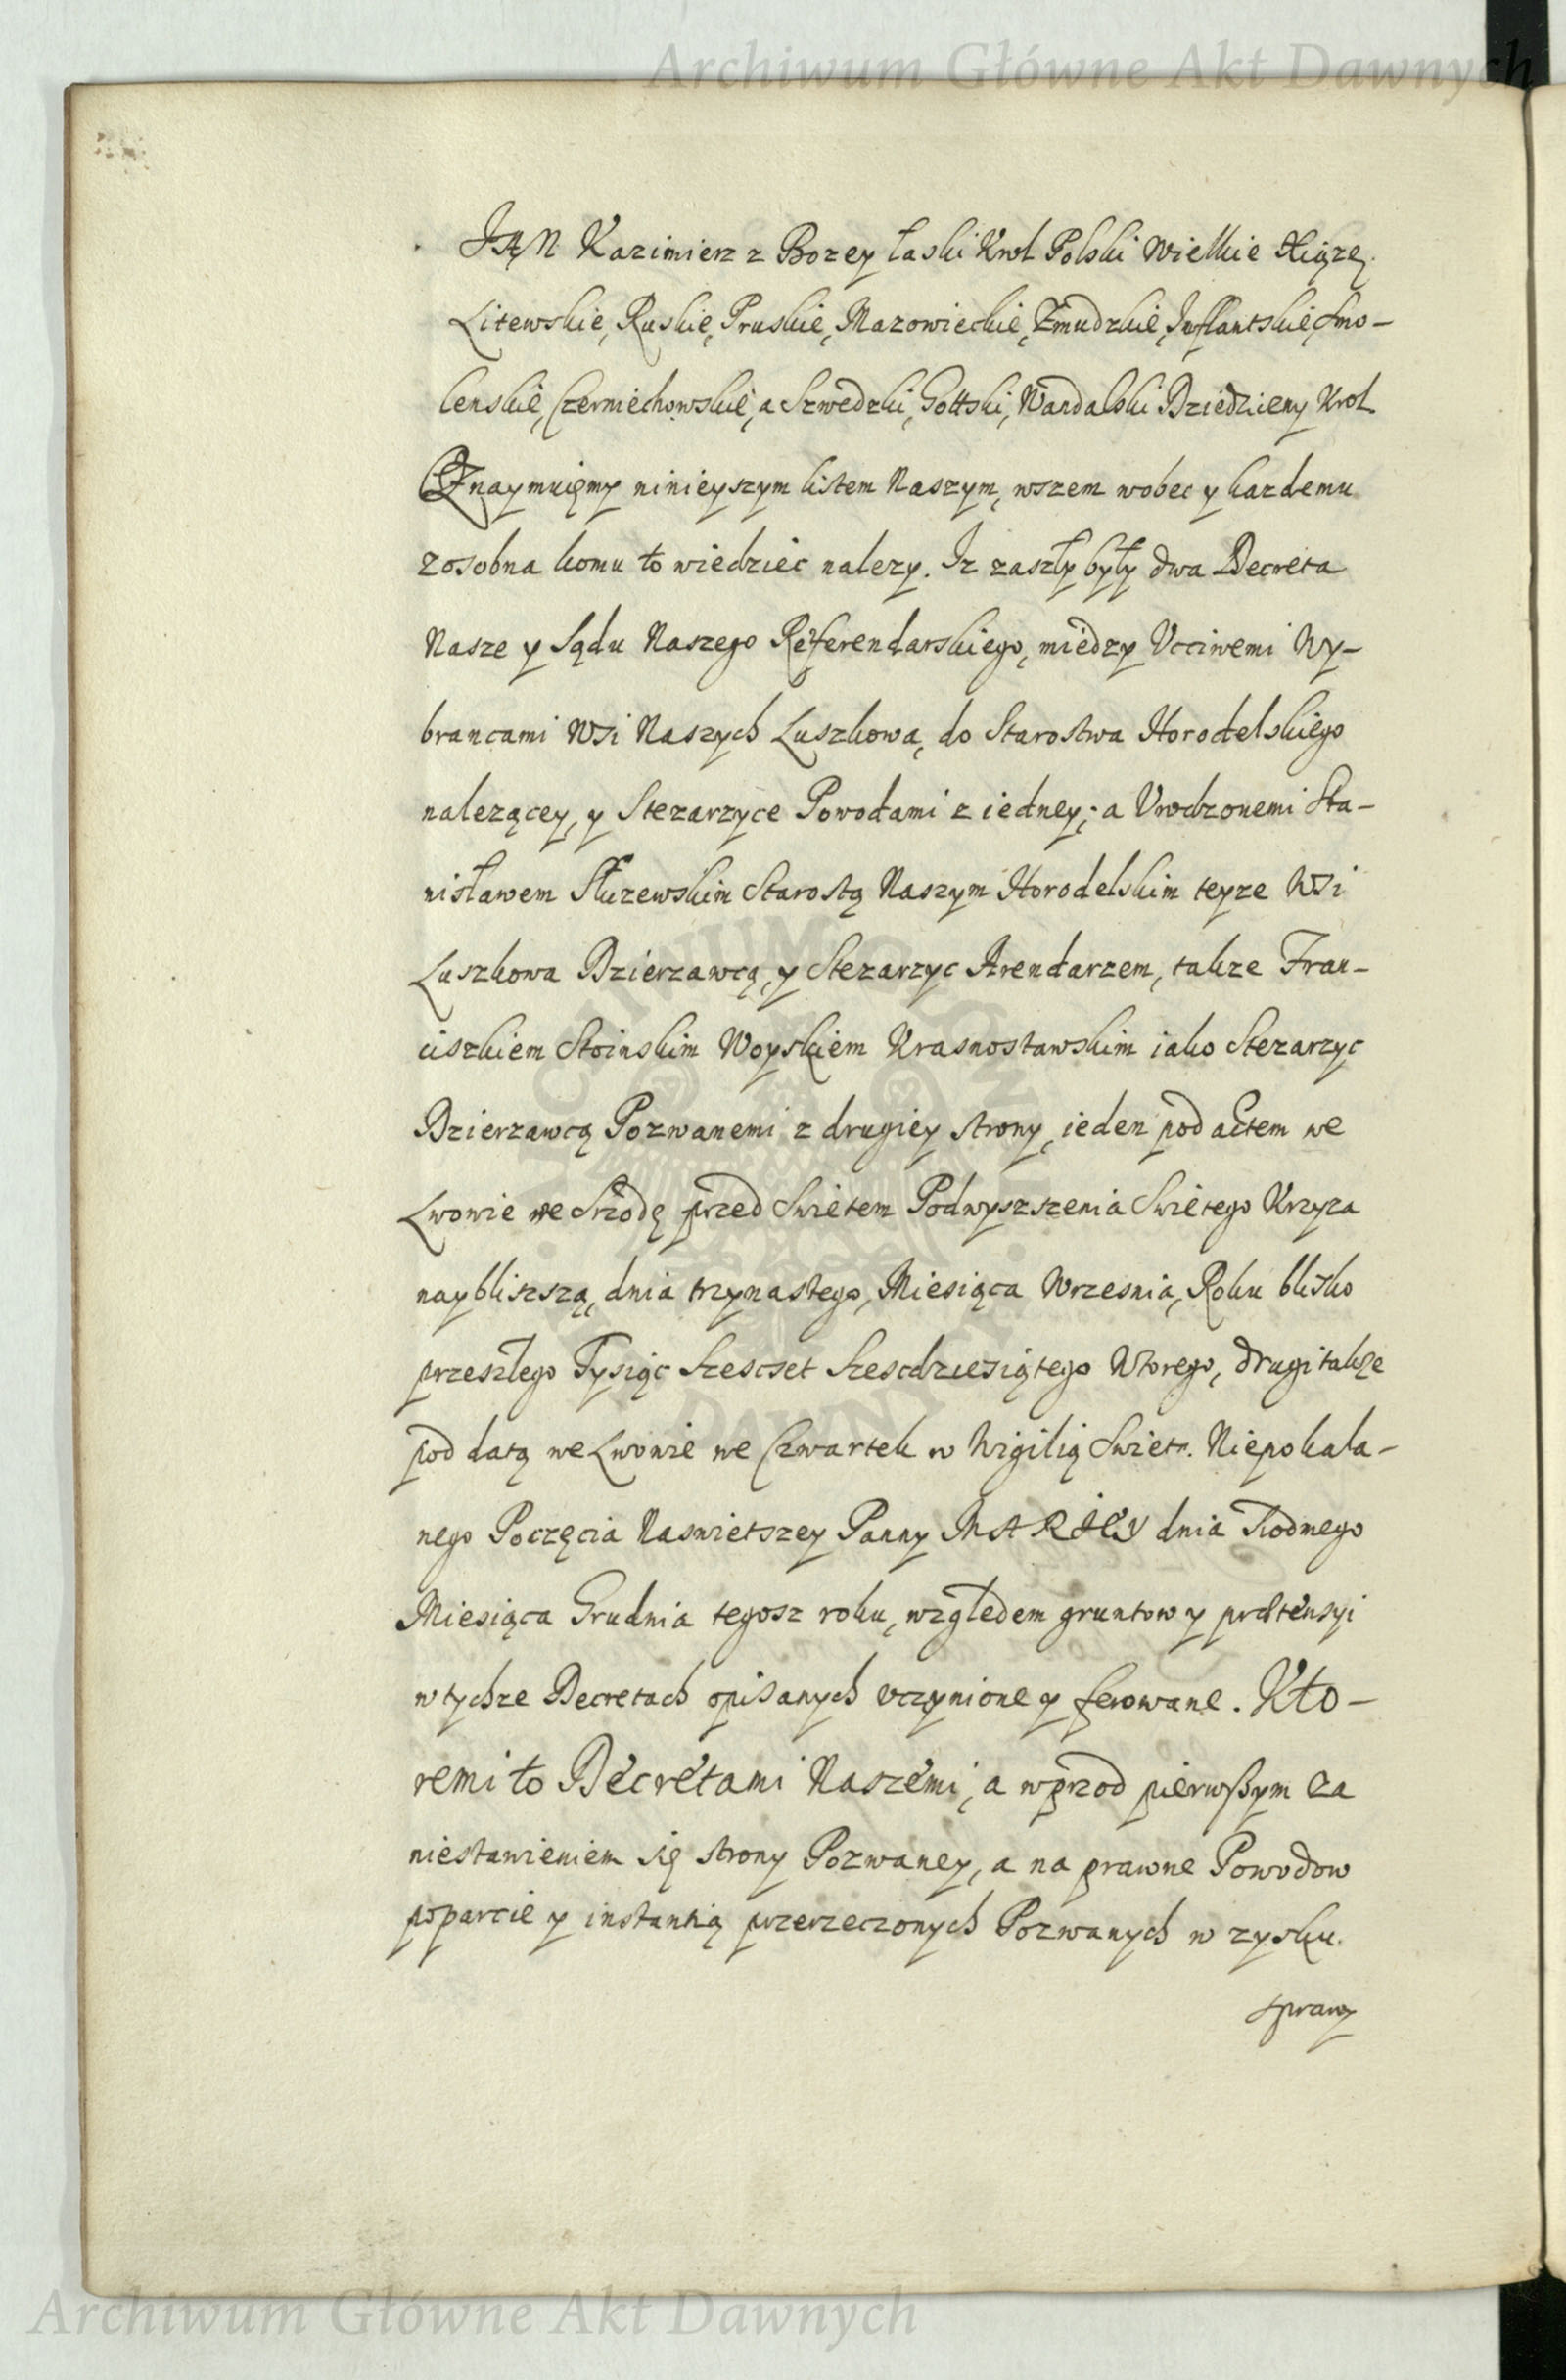 Archiwum Główne Akt Dawnych
JAN Kazimierz z Bozey łaski Krol Polski Wielkie Xiąze.
Litewskie, Ruskie, Pruskie, Mazowieckie, Zmudzkie, Inflantskie, Smo-
lenskie, Czerniechowskie, a Szwedzki, Gottski, Wandalski Dziedziczny Krol
Oznaymuięmy ninieyszym listem Naszym, wszem wobec y kazdemu
zosobna komu to wiedziec nalezy. Iz zaszły były dwa Decreta
Nasze y Sądu Naszego Referendarskiego, miedzy Vcciwemi Wy-
brancami Wsi Naszych Luszkowa, do Starostwa Horodelskiego
nalezącey, y Stezarzyce Powodami z iedney; a Vrodzonemi Sta-
nisławem Służewskim Starostą Naszym Horodelskim teyze Wsi
Luszkowa Dzierzawcą, y Stezarzyc Arendarzem, takze Fran-
ciszkiem Stoinskim Woyskiem Krasnostawskim iako Stezarzyc
Dzierzawcą Pozwanemi z drugiey strony, ieden pod actem we
Lwowie we Srzodę przed Swietem Podwyszszenia Swietego Krzyza
naybliszszą, dnia trzynastego, Miesiąca Wrzesnia, Roku blisko
przeszłego Tysiąc Szescset Szescdziesiątego Wtorego, drugi takze
pod datą we Lwowie we Czwartek w Wigilią Swiet. Niepokala-
nego Poczęcia Naswietszey Panny MARIEY dnia Siodmego
Miesiąca Grudnia tegosz roku, względem gruntow y prætensyi
w tychze Decretach opisanych vczynione y ferowane. Kto-
remi to Decretami Naszemi, a wprzod pierwßym za
niestawieniem się strony Pozwaney, a na prawne Powodow
poparcie y instantią przerzeczonych Pozwanych w zysku.
sprawy
Archiwum Główne Akt Dawnych